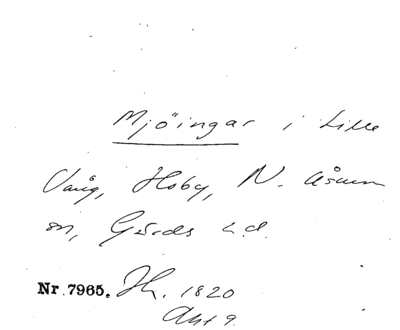 Mjöingar i Lille
Vång, Hoby, N. Åsum
sn, Gärds hd.
Nr. 7965. Hh. 1820
Akt 9